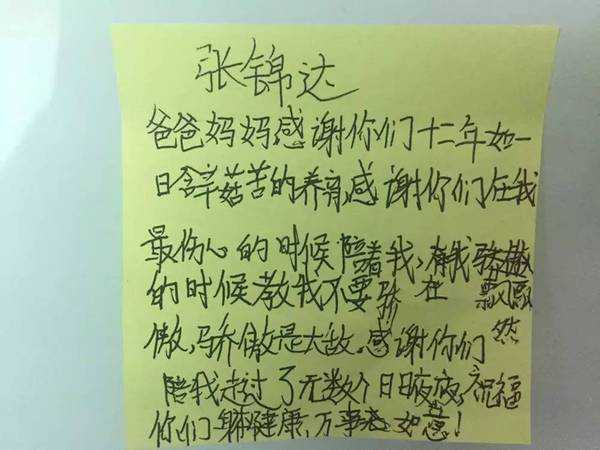 张锦达
爸爸妈妈感谢你们十二年如一
日含辛菇苦的养育,感谢你们在我
最伤心的时候陪着我,我骄傲
的时候教我不要骄 在 飘飘
然
傲,骄傲是大敌.感谢你们
陪我走过了无数个日日夜夜,祝福
你们身体健康,万事如意!